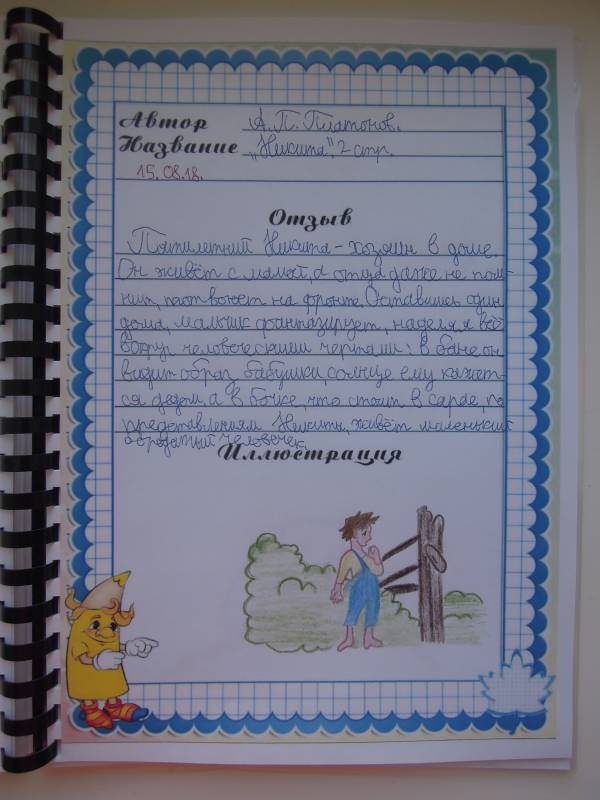 Автор А. П. Платонов.
Название „Никита", 2 стр.
15.08.18.
Отзыв
Пятилетний Никита - хозяин в доме.
Он живёт с мамой, а отца даже не пом-
нит, тот воюет на фронте. Оставшись один
дома, мальчик фантазирует, наделяя всё
вокруг человеческими чертами: в бане он
видит образ бабушки, солнце ему кажет-
ся дедом, а в бочке, что стоит в сарае, по
представлениям Никиты, живёт маленький
бородатый человечек.
Иллюстрация